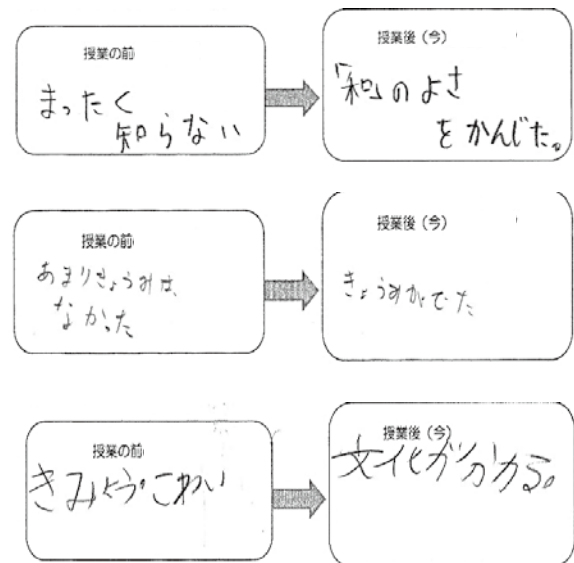 授業の前
まったく
知らない
授業後（今）
「和」のよさ
をかんじた。
授業の前
あまりきょうみは、
なかった
授業後（今）
きょうみがでた
授業の前
きみょう・こわい
授業後（今）
文化が分かる。